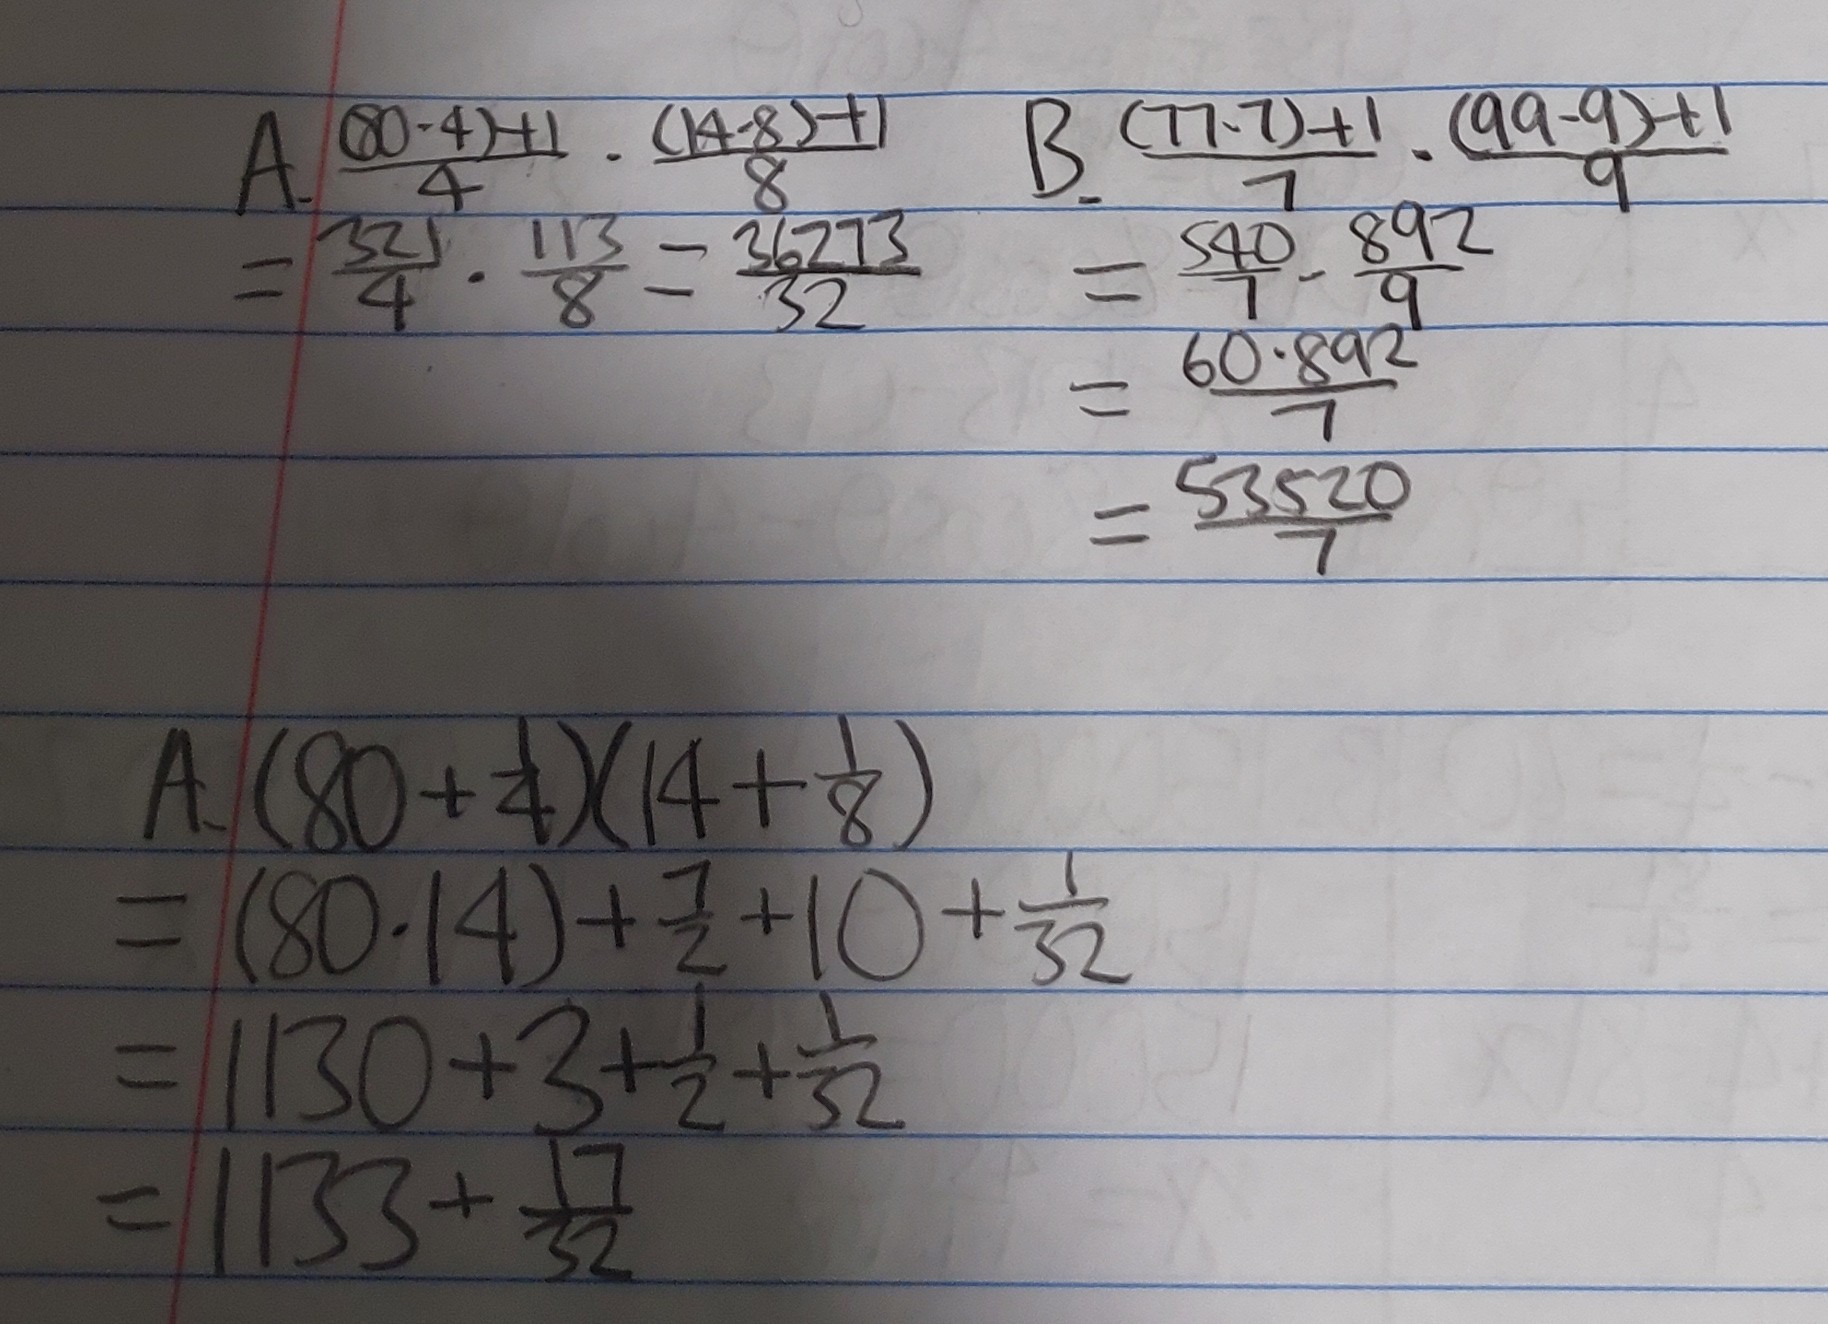 A. ((80·4)+1)/4 · ((14·8)+1)/8
= 321/4 · 113/8 = 36273/32
B. ((77·7)+1)/7 · ((99·9)+1)/9
= 540/7 · 892/9
= (60·892)/7
= 53520/7
A. (80 + 1/4)(14 + 1/8)
= (80·14) + 7/2 + 10 + 1/32
= 1130 + 3 + 1/2 + 1/32
= 1133 + 17/32